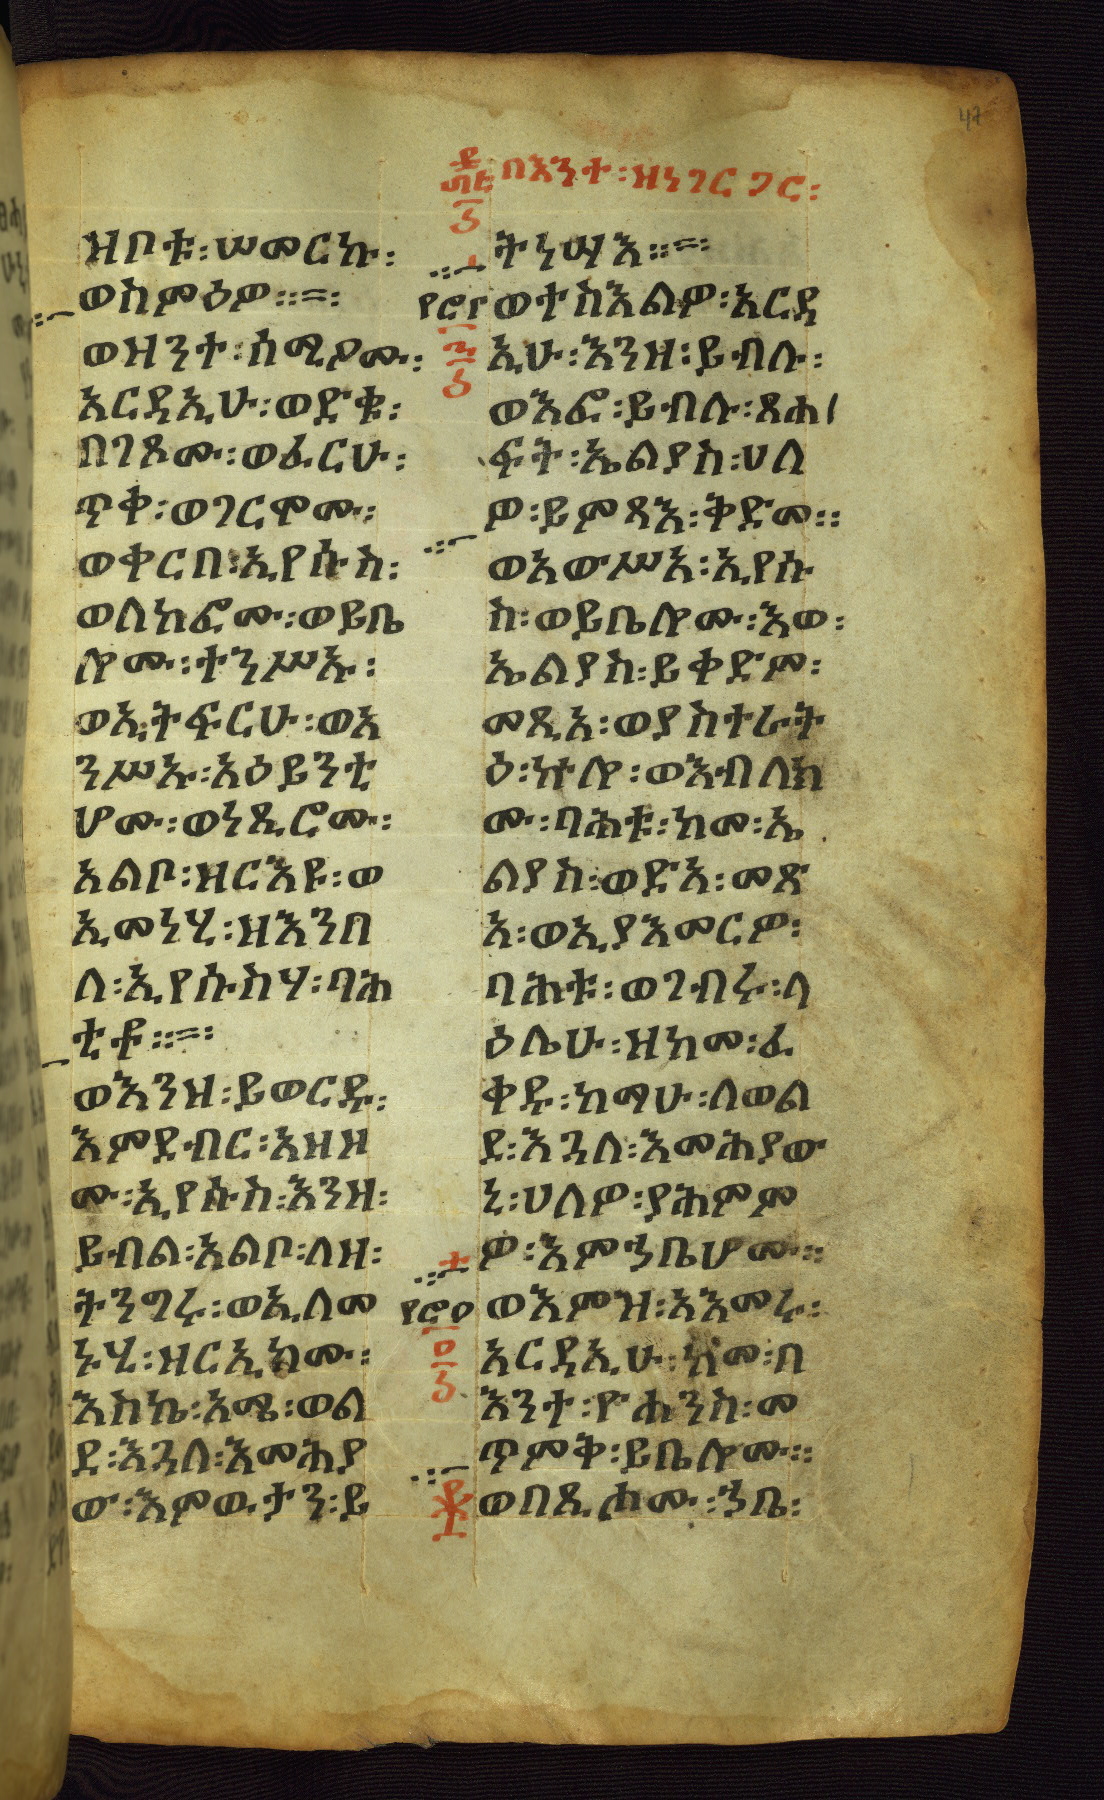 47
በእንተ፡ዘነገርጋር፡
ዝቦቱ፡ሠመርኩ፡
ወስምዕዎ፡፡=፡
ወዝንተ፡ሰሚዖሙ፡
አርዳኢሁ፡ወድቁ፡
በገጾሙ፡ወፈርሁ፡
ጥቀ፡ወገርሞሙ፡
ወቀርበ፡ኢየሱስ፡
ወለከፎሙ፡ወይቤ
ሎሙ፡ተንሥኡ፡
ወኢትፍርሁ፡ወአ
ንሥኡ፡አዕይንቲ
ሆሙ፡ወነጺሮሙ፡
አልቦ፡ዘርእዩ፡ወ
ኢመነሂ፡ዘእንበ
ለ፡ኢየሱስሃ፡ባሕ
ቲቶ፡፡=፡
ወእንዝ፡ይወርዱ፡
እምደብር፡አዘዘ
ሙ፡ኢየሱስ፡እንዘ፡
ይብል፡አልቦ፡ለዘ፡
ትንግሩ፡ወኢለመ
ኑሂ፡ዘርኢክሙ፡
እስኬ፡አሜ፡ወል
ደ፡እጓለ፡እመሕያ
ው፡እምውታን፡ይ
ትነሣእ፡፡=፡
ወተስእልዎ፡አርዳ
ኢሁ፡እንዘ፡ይብሉ፡
ወእፎ፡ይብሉ፡ጸሐ
ፍት፡ኤልያስ፡ሀለ
ዎ፡ይምጻእ፡ቅድመ፡፡
ወአውሥአ፡ኢየሱ
ስ፡ወይቤሎሙ፡እወ፡
ኤልያስ፡ይቀድም፡
መጺአ፡ወያስተራት
ዕ፡ኵሎ፡ወእብለክ
ሙ፡ባሕቱ፡ከመ፡ኤ
ልያስ፡ወድአ፡መጽ
አ፡ወኢያእመርዎ፡
ባሕቱ፡ወገብሩ፡ላ
ዕሌሁ፡ዝከመ፡ፈ
ቀዱ፡ከማሁ፡ለወል
ደ፡እጓለ፡እመሕያው
ኒ፡ሀለዎ፡ያሕምም
ዎ፡እምኀቤሆሙ፡፡
ወእምዝ፡አእመሩ፡
አርዳኢሁ፡ከመ፡በ
እንተ፡ዮሐንስ፡መ
ጥምቅ፡ይቤሎሙ፡፡
ወበጺሖሙ፡ኀቤ፡